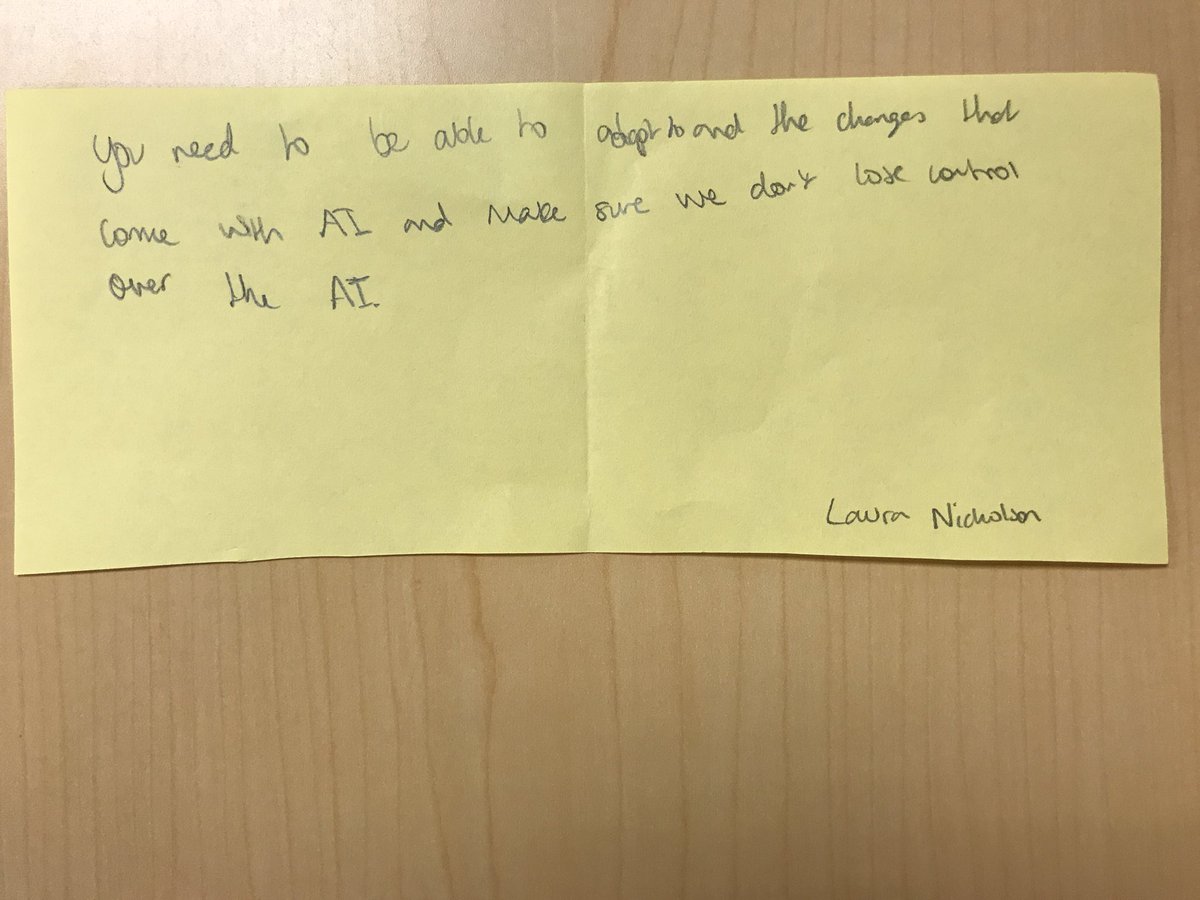 You need to be able to adapt to and the changes that
come with AI and make sure we don't lose control
over the AI.
Laura Nicholson